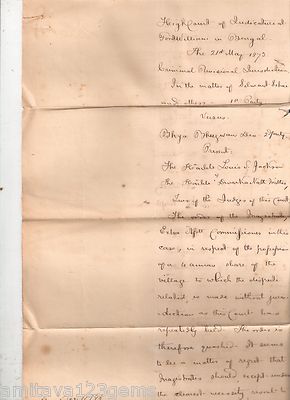 High Court of Judicature at
Fort William in Bengal
The 21st May 1873
Criminal Revisional Jurisdiction
In the matter of Edward
and others 1st Party
Versus
Bhya Deo 2nd party
Present
The Honble Louis S Jackson
The Honble Dwarkanath Mitter
Two of the Judges of this Court
The order of the Magistrate
Extra Asstt Commissioner in this
case, in respect of the possession
of a 4 annas share of the
village to which the dispute
related is made without juris-
-diction as this Court has
repeatedly held. The order is
therefore quashed. It seems
to be a matter of regret that
Magistrates should except under
the clearest necessity resort to
amitava123gems